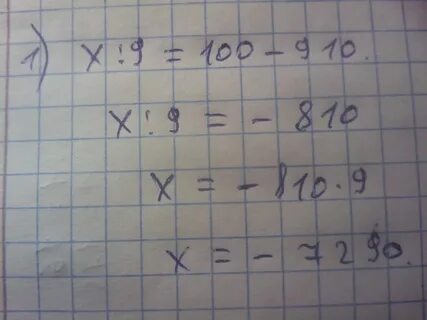 1) x : 9 = 100 - 910.
x : 9 = - 810
x = - 810 · 9
x = - 7290.